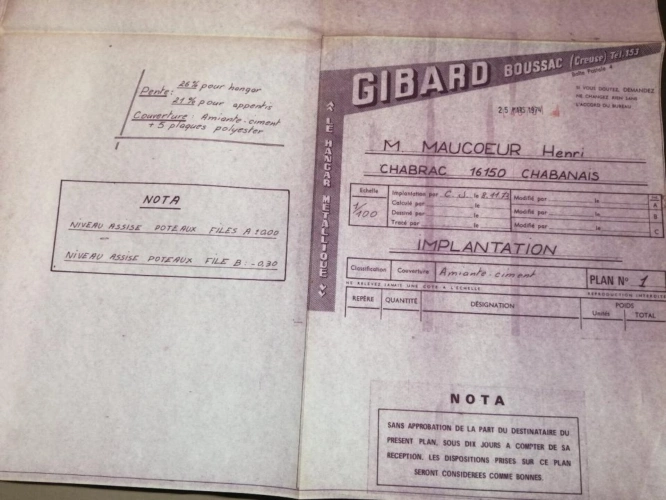 Pente: 26% pour hangar
21% pour appentis
Couverture: Amiante-ciment
+ 5 plaques polyester
NOTA
NIVEAU ASSISE POTEAUX FILES A ±0.00
NIVEAU ASSISE POTEAUX FILE B: -0.30
GIBARD BOUSSAC (Creuse) Tél. 353
Boîte Postale
SI VOUS DOUTEZ, DEMANDEZ
NE CHANGEZ RIEN SANS
L'ACCORD DU BUREAU
25 MARS 1974
LE HANGAR METALLIQUE
M MAUCOEUR Henri
CHABRAC 16150 CHABANAIS
Echelle
1/100
Implantation par C.J. le Modifié par le A
Calculé par le Modifié par le B
Dessiné par le Modifié par le C
Tracé par le Modifié par le
IMPLANTATION
Classification Couverture Amiante-ciment PLAN N° 1
NE RELEVEZ JAMAIS UNE COTE A L'ECHELLE
REPRODUCTION INTERDITE
REPÈRE QUANTITÉ DÉSIGNATION POIDS
Unités TOTAL
NOTA
SANS APPROBATION DE LA PART DU DESTINATAIRE DU
PRESENT PLAN, SOUS DIX JOURS A COMPTER DE SA
RECEPTION, LES DISPOSITIONS PRISES SUR CE PLAN
SERONT CONSIDEREES COMME BONNES.